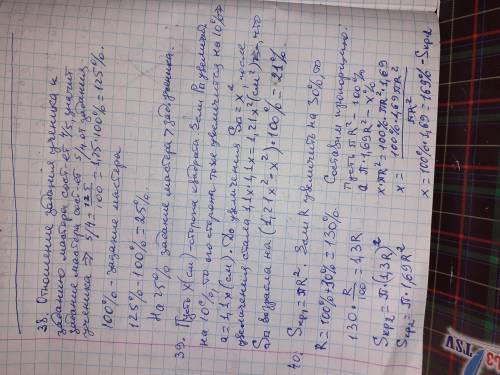 38. Отношение задания ученика к
заданию мастера сост-ет 4/5, значит
задание мастера сост-ет 5/4 от задания
ученика => 5/4 = 125/100 = 1,25·100% = 125%.
100% - задание мастера
125% - 100% = 25%.
На 25% задание мастера > зад. ученика.
39. Пусть х (см) - сторона квадрата. Если Р увеличит.
на 10%, то его сторона тоже увеличится на 10% =>
a = 1,1x (см). До увеличения Sкв = x², после
увеличения стала 1,1x·1,1x = 1,21x² (см²) =>, что
Sкв возросла на (1,21x² - x²)·100% = 21%.
40. Sкр1 = πR² Если R увеличить на 30%, то
R = 100% + 30% = 130% Составим пропорцию:
130 · R/100 = 1,3R Пусть πR² - 100%
Sкр2 = π·(1,3R)² а π·1,69R² - x%
Sкр2 = π·1,69R² x·πR² = 100%·πR²·1,69
x = 100%·1,69πR²/πR²
x = 100%·1,69 = 169% - Sкр2
TSV